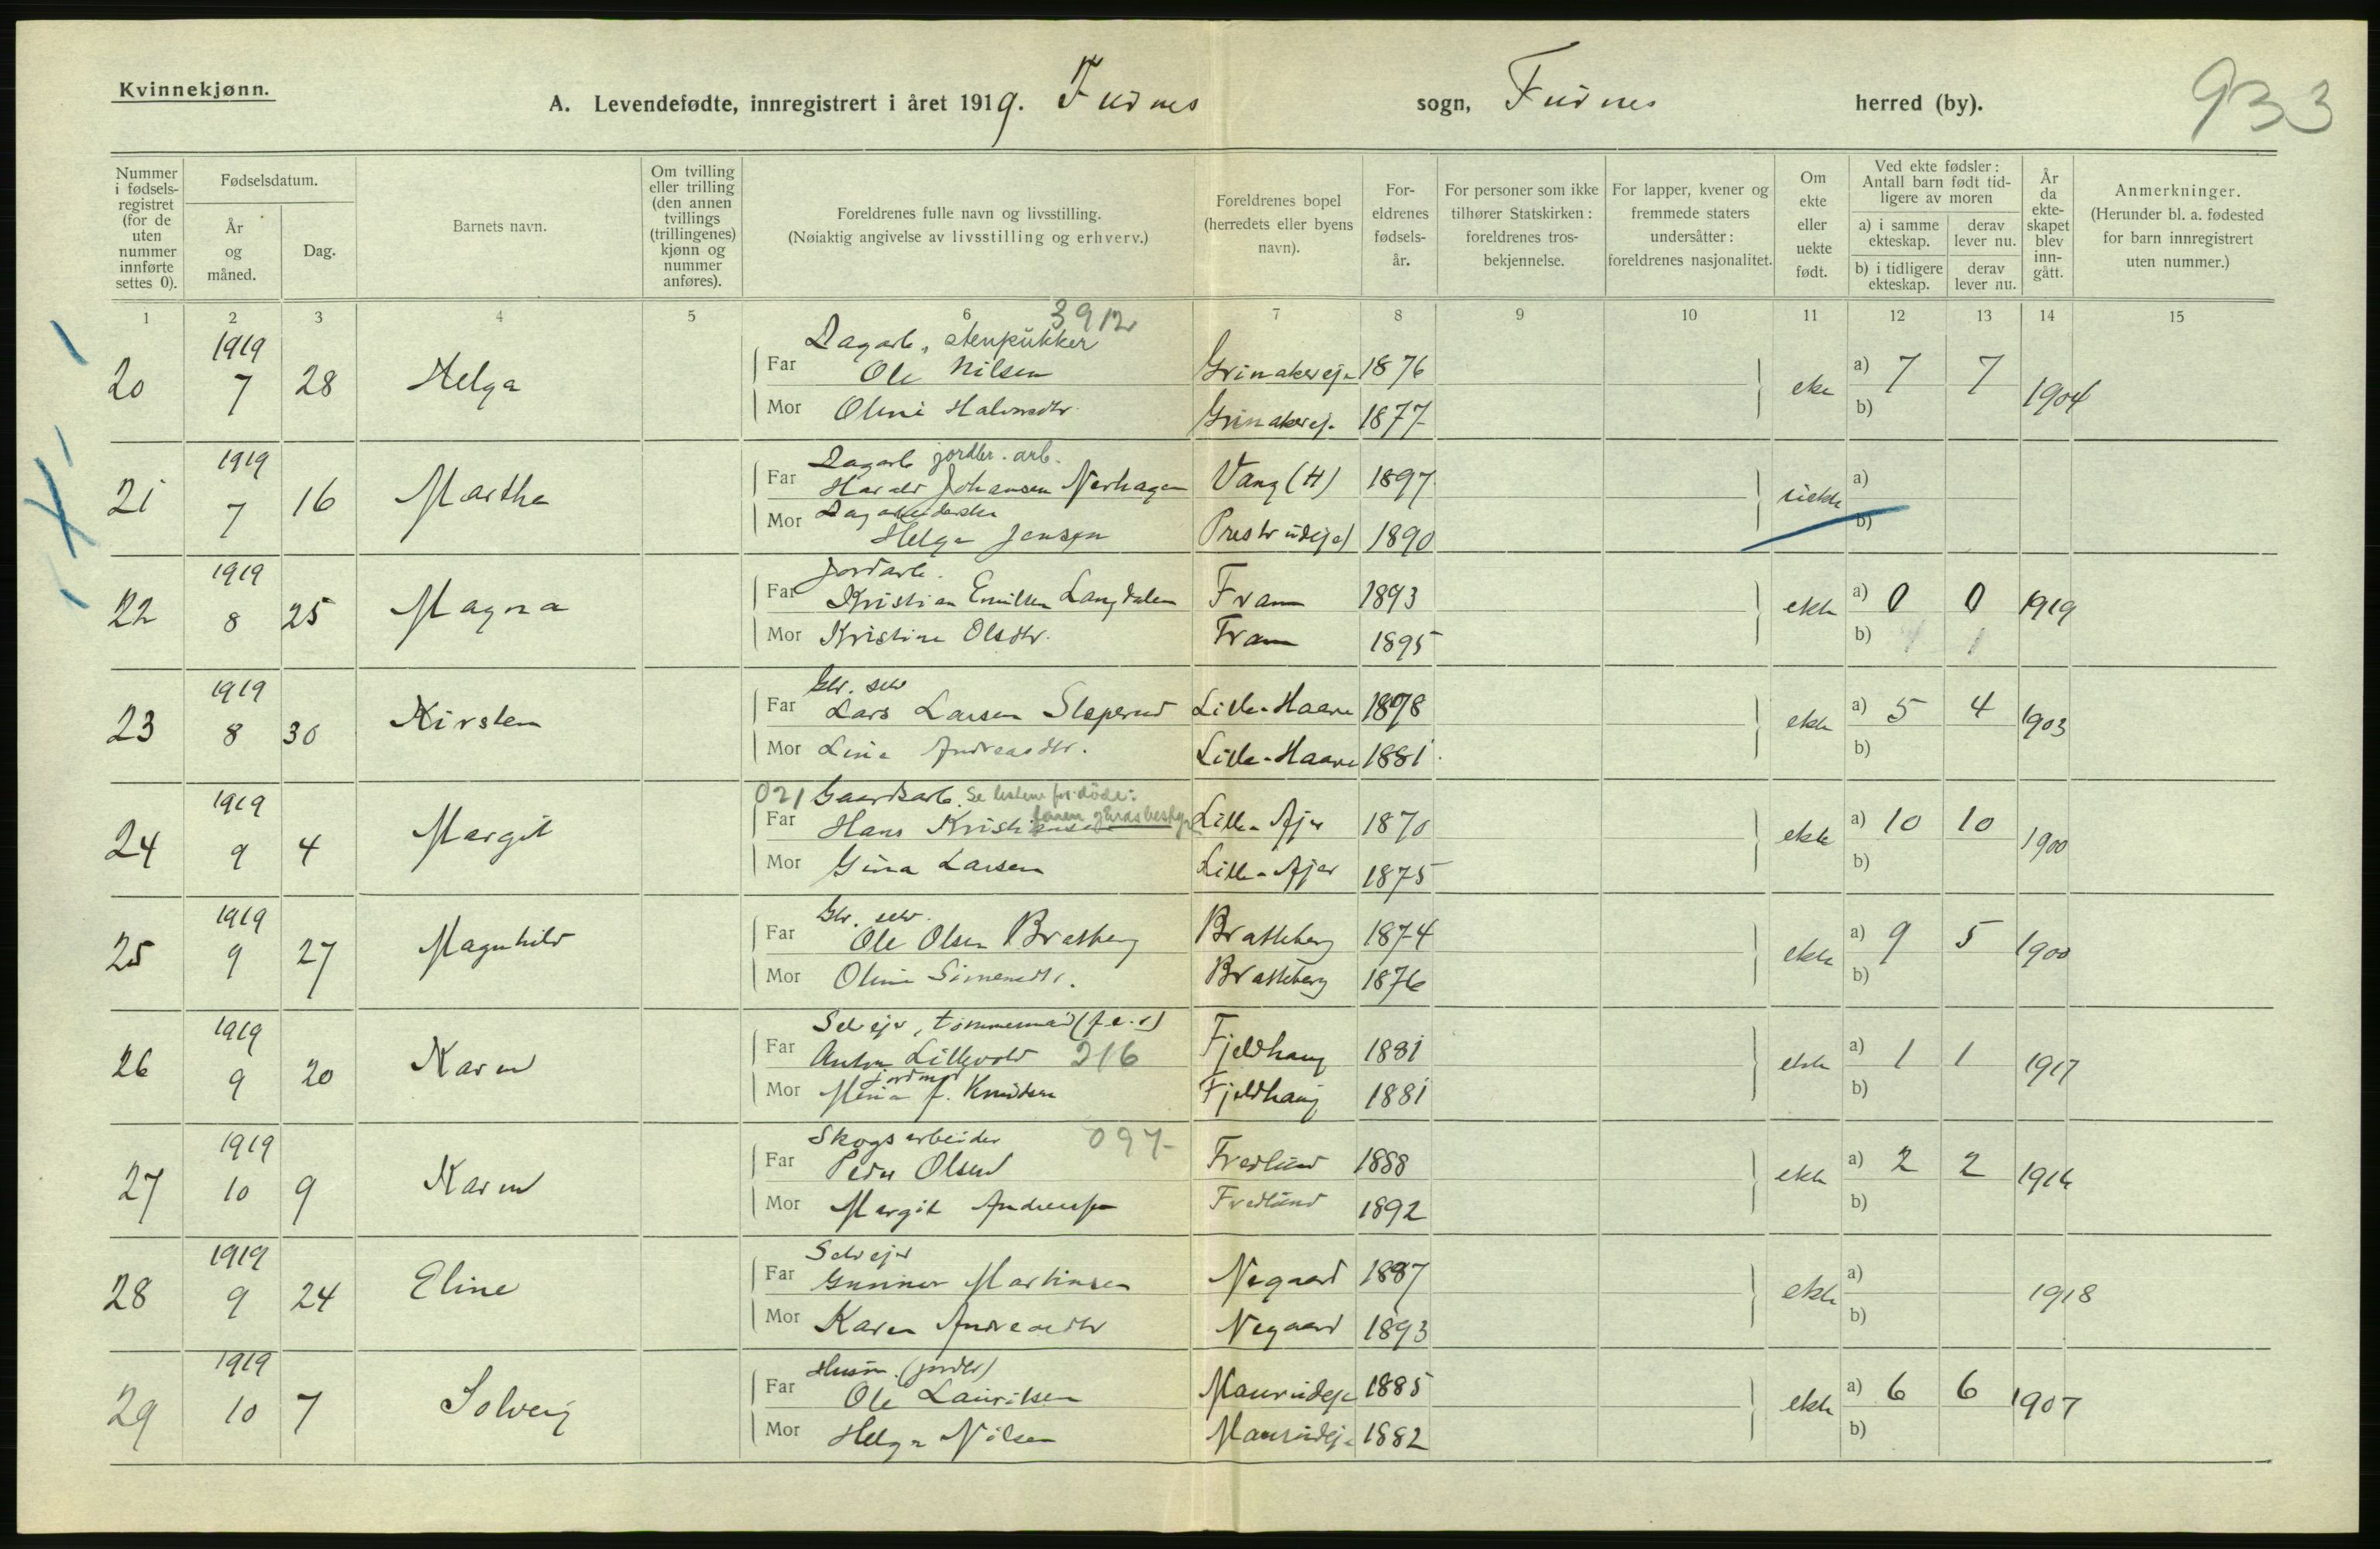 Kvinnekjønn.
A. Levendefødte, innregistrert i året 1919. Furnes sogn, Furnes herred (by).
933
Nummer i fødsels-registret (for de uten nummer innførte settes 0).
Fødselsdatum.
År og måned.
Dag.
Barnets navn.
Om tvilling eller trilling (den annen tvillings (trillingenes) kjønn og nummer anføres).
Foreldrenes fulle navn og livsstilling.
(Nøiaktig angivelse av livsstilling og erhverv.)
Foreldrenes bopel (herredets eller byens navn).
For-eldrenes fødsels-år.
For personer som ikke tilhører Statskirken: foreldrenes tros-bekjennelse.
For lapper, kvener og fremmede staters undersåtter: foreldrenes nasjonalitet.
Om ekte eller uekte født.
Ved ekte fødsler: Antall barn født tid-ligere av moren
a) i samme ekteskap.
derav lever nu.
b) i tidligere ekteskap.
derav lever nu.
År da ekte-skapet blev inn-gått.
Anmerkninger.
(Herunder bl. a. fødested for barn innregistrert uten nummer.)
1 2 3 4 5 6 7 8 9 10 11 12 13 14 15
3912
Dagarb., stenpukker
20 1919 7 28 Helga Far Ole Nilsen Grinakereje 1876 ekte a) 7 7 1904
Mor Oline Halvorsdtr. Grinakerej. 1877 b)
Dagarb jordbr. arb.
21 1919 7 16 Martha Far Harald Johansen Nerhagen Vang (H) 1897 uekte a)
Dagarbeiderske
Mor Helga Jensen Prestrudeje 1890 b)
Jordarb.
22 1919 8 25 Magna Far Kristian Emilsen Langdalen Fram 1893 ekte a) 0 0 1919
Mor Kristine Olsdtr. Fram 1895 b) 1 1
Gbr. selv
23 1919 8 30 Kirsten Far Lars Larsen Sloperud Lille-Haave 1878 ekte a) 5 4 1903
Mor Lina Andreasdtr. Lille-Haave 1881 b)
021 Gaardsarb. Se listen for døde:
faren gårdsbestyr
24 1919 9 4 Margit Far Hans Kristiansen Lille-Ajer 1870 ekte a) 10 10 1900
Mor Gina Larsen Lille-Ajer 1875 b)
Gbr. selv.
25 1919 9 27 Magnhild Far Ole Olsen Bratberg Bratteberg 1874 ekte a) 9 5 1900
Mor Oline Simensdtr. Bratteberg 1876 b)
Selvejer, tømmermand (f.e.r)
26 1919 9 20 Karen Far Anton Lillevold 216 Fjeldhaug 1881 ekte a) 1 1 1917
jordmor
Mor Mina f. Knudsen Fjeldhaug 1881 b)
Skogsarbeider 097
27 1919 10 9 Karen Far Peder Olsen Fredlund 1888 ekte a) 2 2 1916
Mor Margit Andreassen Fredlund 1892 b)
Selvejer
28 1919 9 24 Eline Far Gunnar Martinsen Negaard 1887 ekte a) 1918
Mor Karen Andreasdtr Negaard 1893 b)
Husm. (jordbr)
29 1919 10 7 Solveig Far Ole Lauritsen Maurudeje 1885 ekte a) 6 6 1907
Mor Helga Nilsen Maurudeje 1882 b)